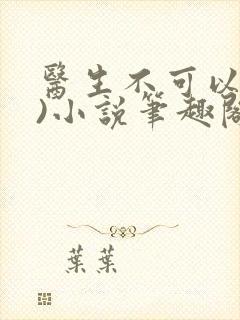 醫生不可以
)小說筆趣閣
葉葉